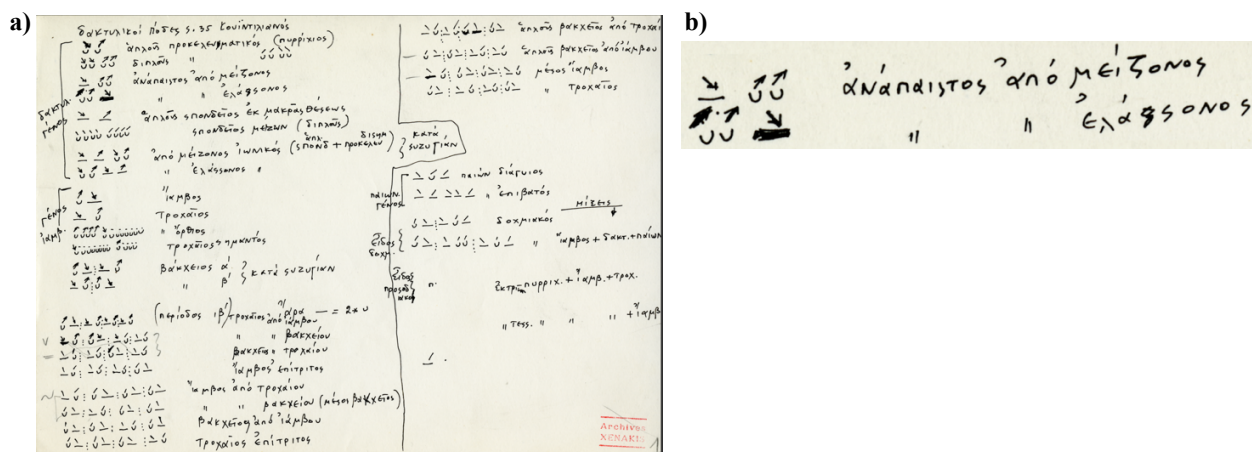 a)
δακτυλικοὶ πόδες s. 35 Κουϊντιλιανός
ἁπλοῦς προκελευσματικός (πυρρίχιος)
διπλοῦς "
ἀνάπαιστος ἀπὸ μείζονος
" " ἐλάσσονος
ἁπλοῦς σπονδεῖος ἐκ μακρᾶς θέσεως
σπονδεῖος μείζων (διπλοῦς)
ἀπὸ μείζονος ἰωνικός (ἁπλ. σπονδ + δισημ προκελευ)
" ἐλάσσονος "
κατὰ συζυγίαν
δακτυλ. γένος
ἴαμβος
τροχαῖος
" ὄρθιος
τροχαῖος σημαντός
βάκχειος α΄
" β΄
κατὰ συζυγίαν
γένος ἰαμβ.
(περίοδος ιβ΄) τροχαῖος ἀπὸ ἰάμβου
ἄρα — = 2 x υ
" " βακχείου
βακχεῖος " τροχαίου
ἴαμβος ἐπίτριτος
ἴαμβος ἀπὸ τροχαίου
" " βακχείου (μέσος βακχεῖος)
βακχεῖος ἀπὸ ἰάμβου
τροχαῖος ἐπίτριτος
ἁπλοῦς βακχεῖος ἀπὸ τροχαί
ἁπλοῦς βακχεῖος ἀπὸ ἰάμβου
μέσος ἴαμβος
" τροχαῖος
παιων. γένος
παιὼν διάγυιος
" ἐπιβατός
μίξεις
δοχμιακός
" ἴαμβος + δακτ. + παίων
εἶδος δοχμ.
εἶδος προσοδιακόν
ἐκ τριῶν πυρριχ. + ἰαμβ. + τροχ.
" τεσσ. " " " + ἰαμβ
Archives
XENAKIS
b)
ἀνάπαιστος ἀπὸ μείζονος
" " ἐλάσσονος